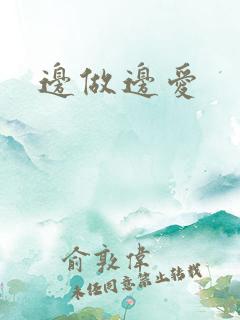 邊做邊愛
俞敦偉
未經同意禁止轉載